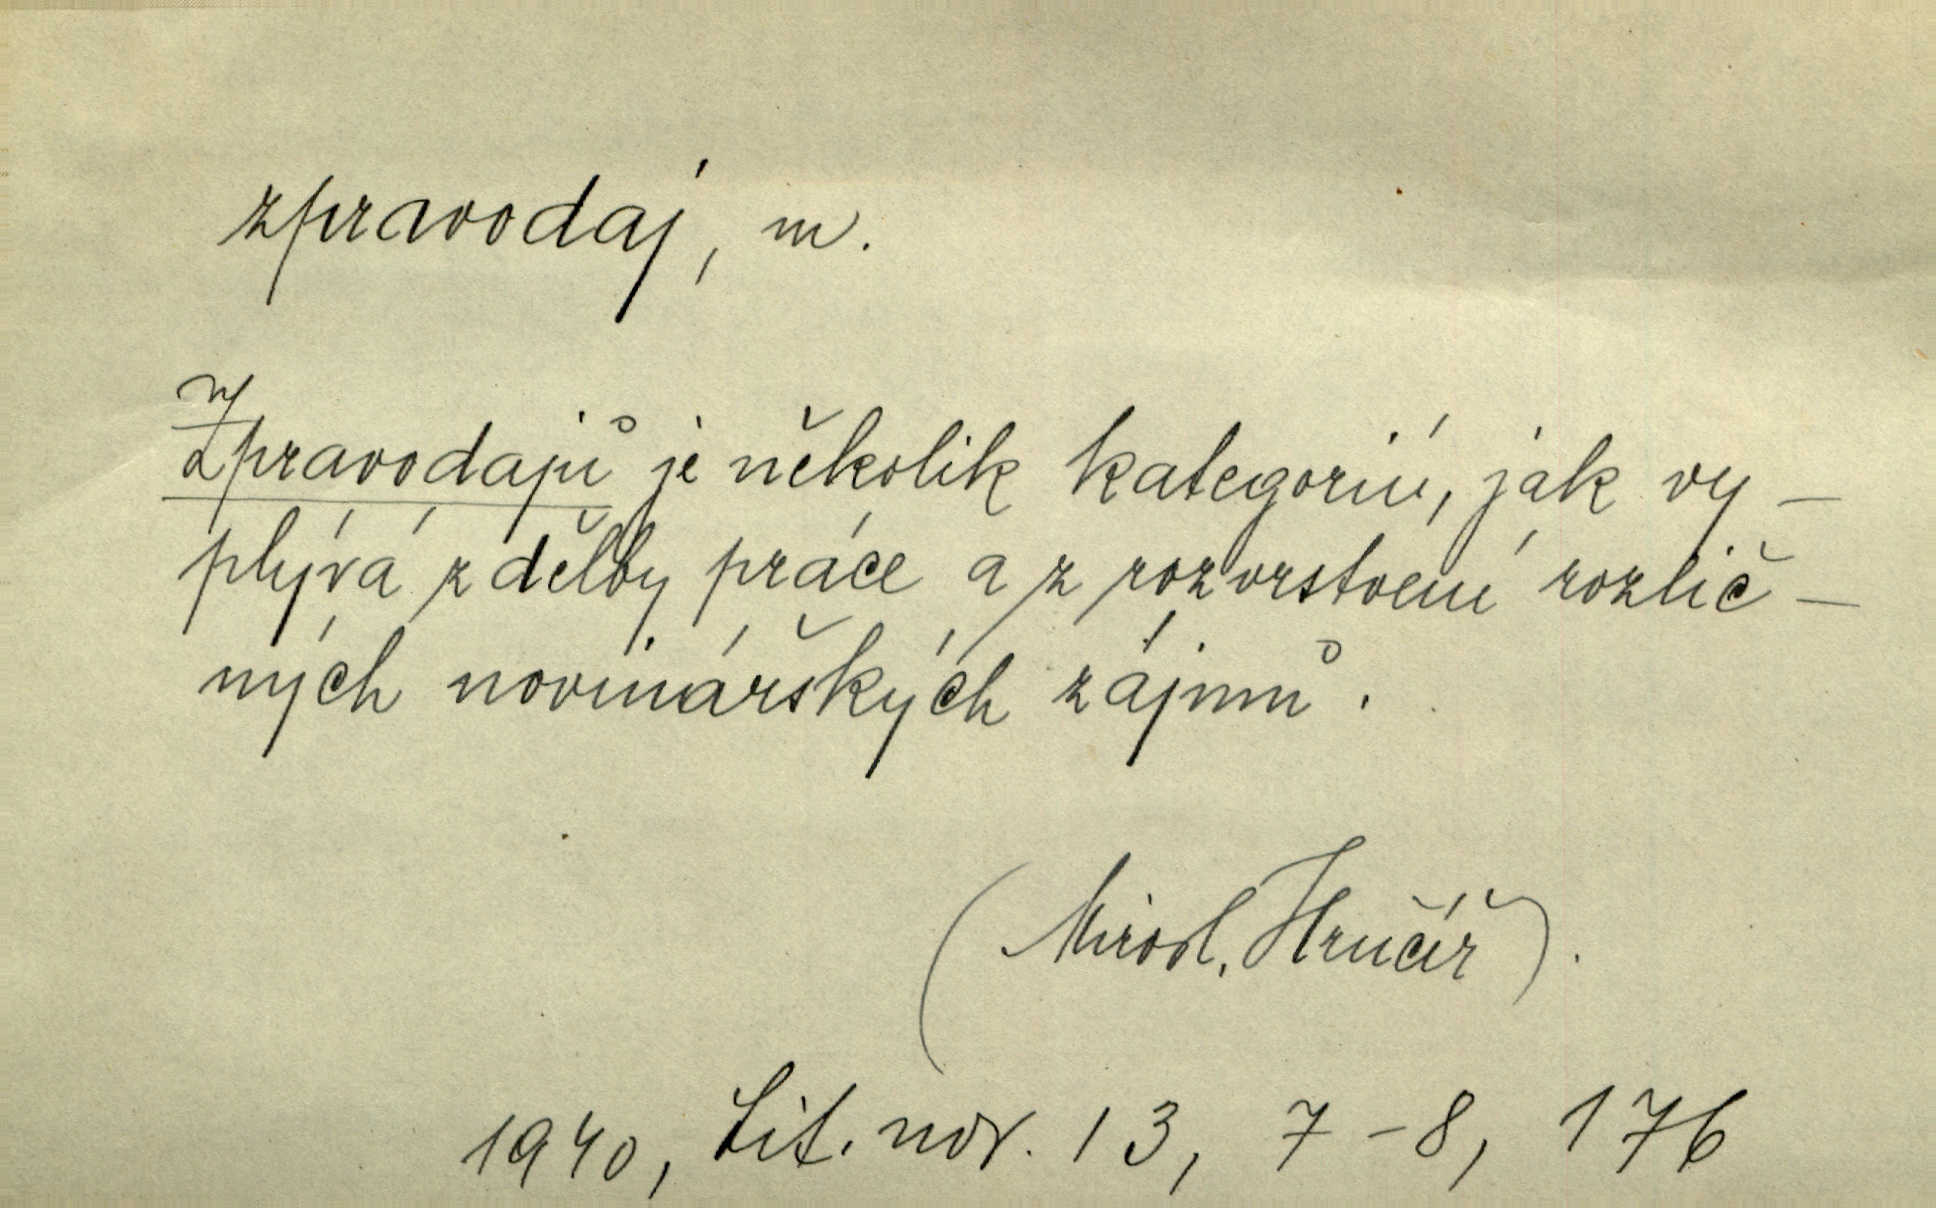 zpravodaj, m.
Zpravodajů je několik kategorií, jak vy-
plývá z dělby práce a z rozvrstvení rozlič-
ných novinářských zájmů.
(Mirosl. Hručíř).
1940, Lit. nov. 13, 7-8, 176